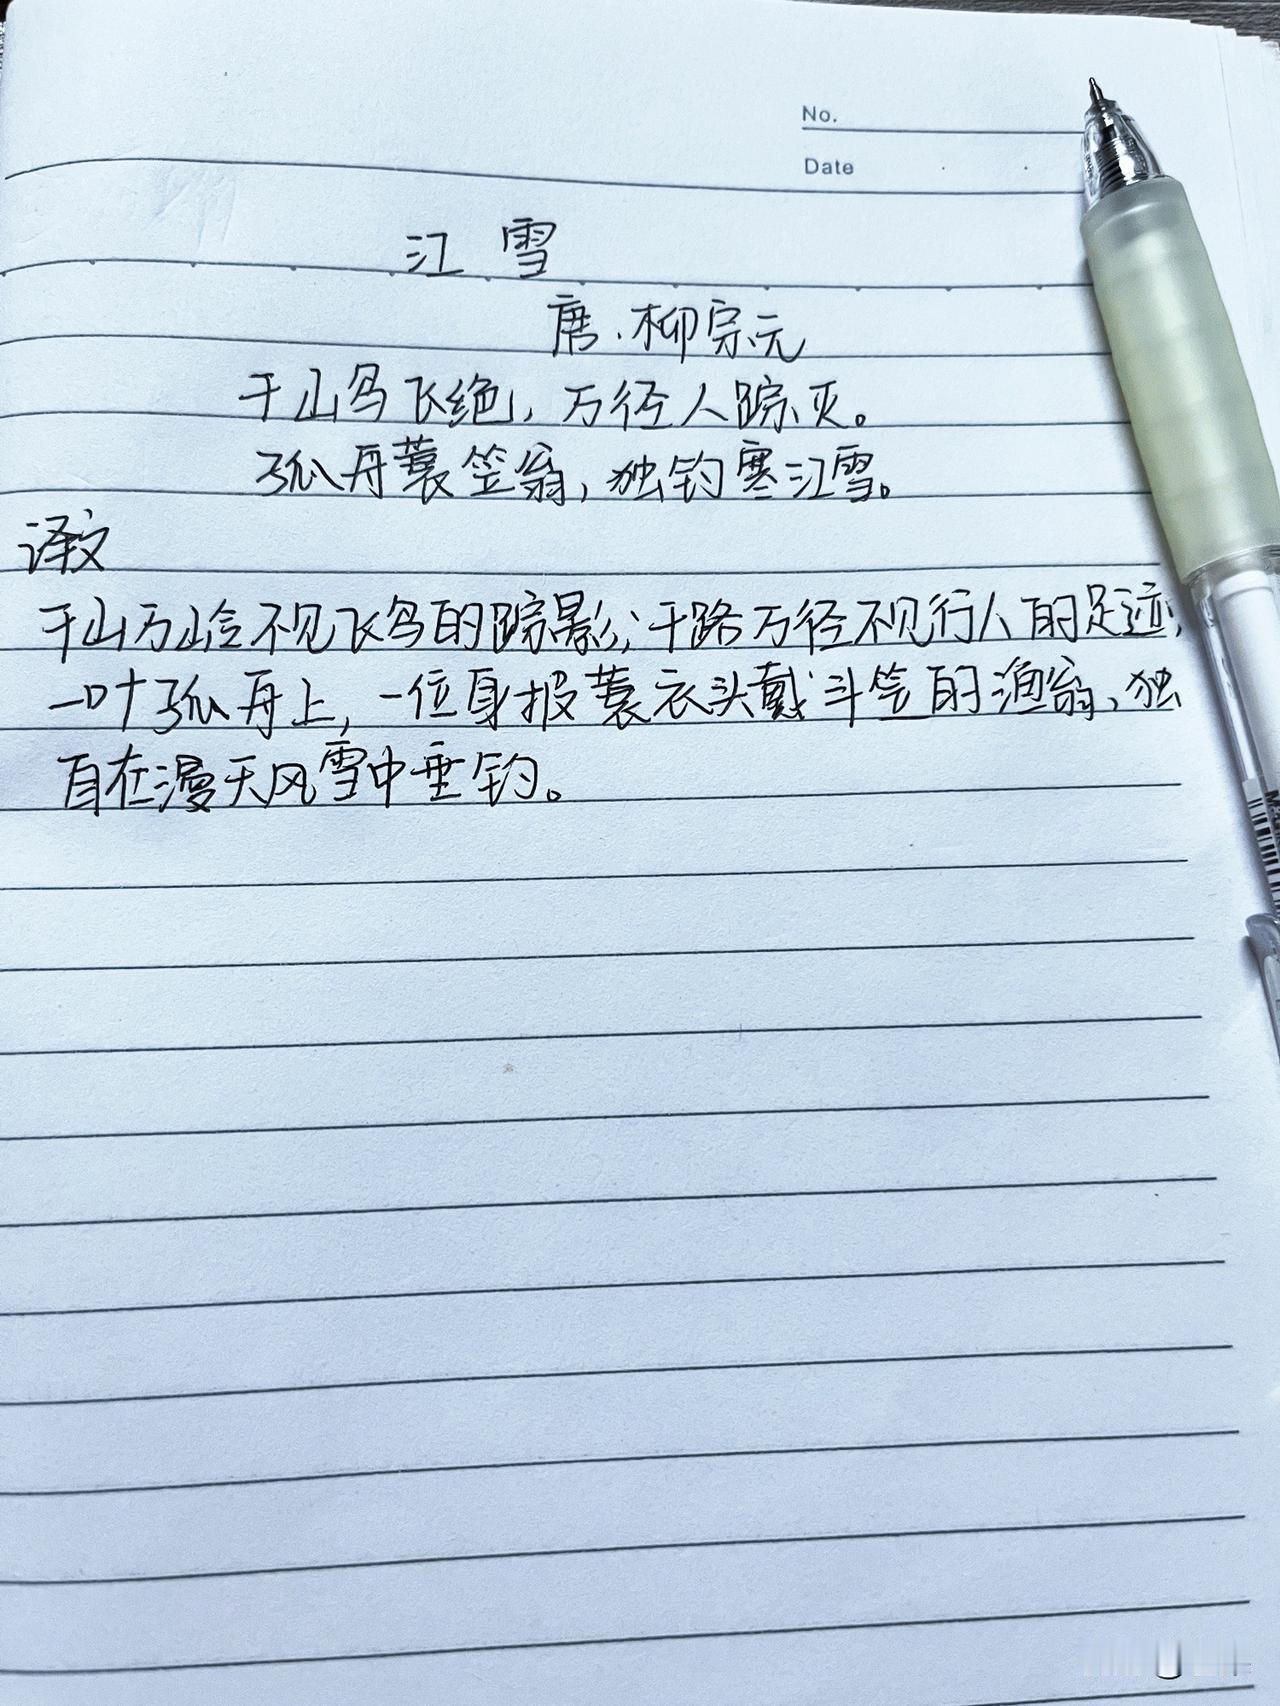 No.
Date
江雪
唐.柳宗元
千山鸟飞绝,万径人踪灭。
孤舟蓑笠翁,独钓寒江雪。
译文
千山万岭不见飞鸟的踪影;千路万径不见行人的足迹;
一叶孤舟上,一位身披蓑衣头戴斗笠的渔翁、独
自在漫天风雪中垂钓。